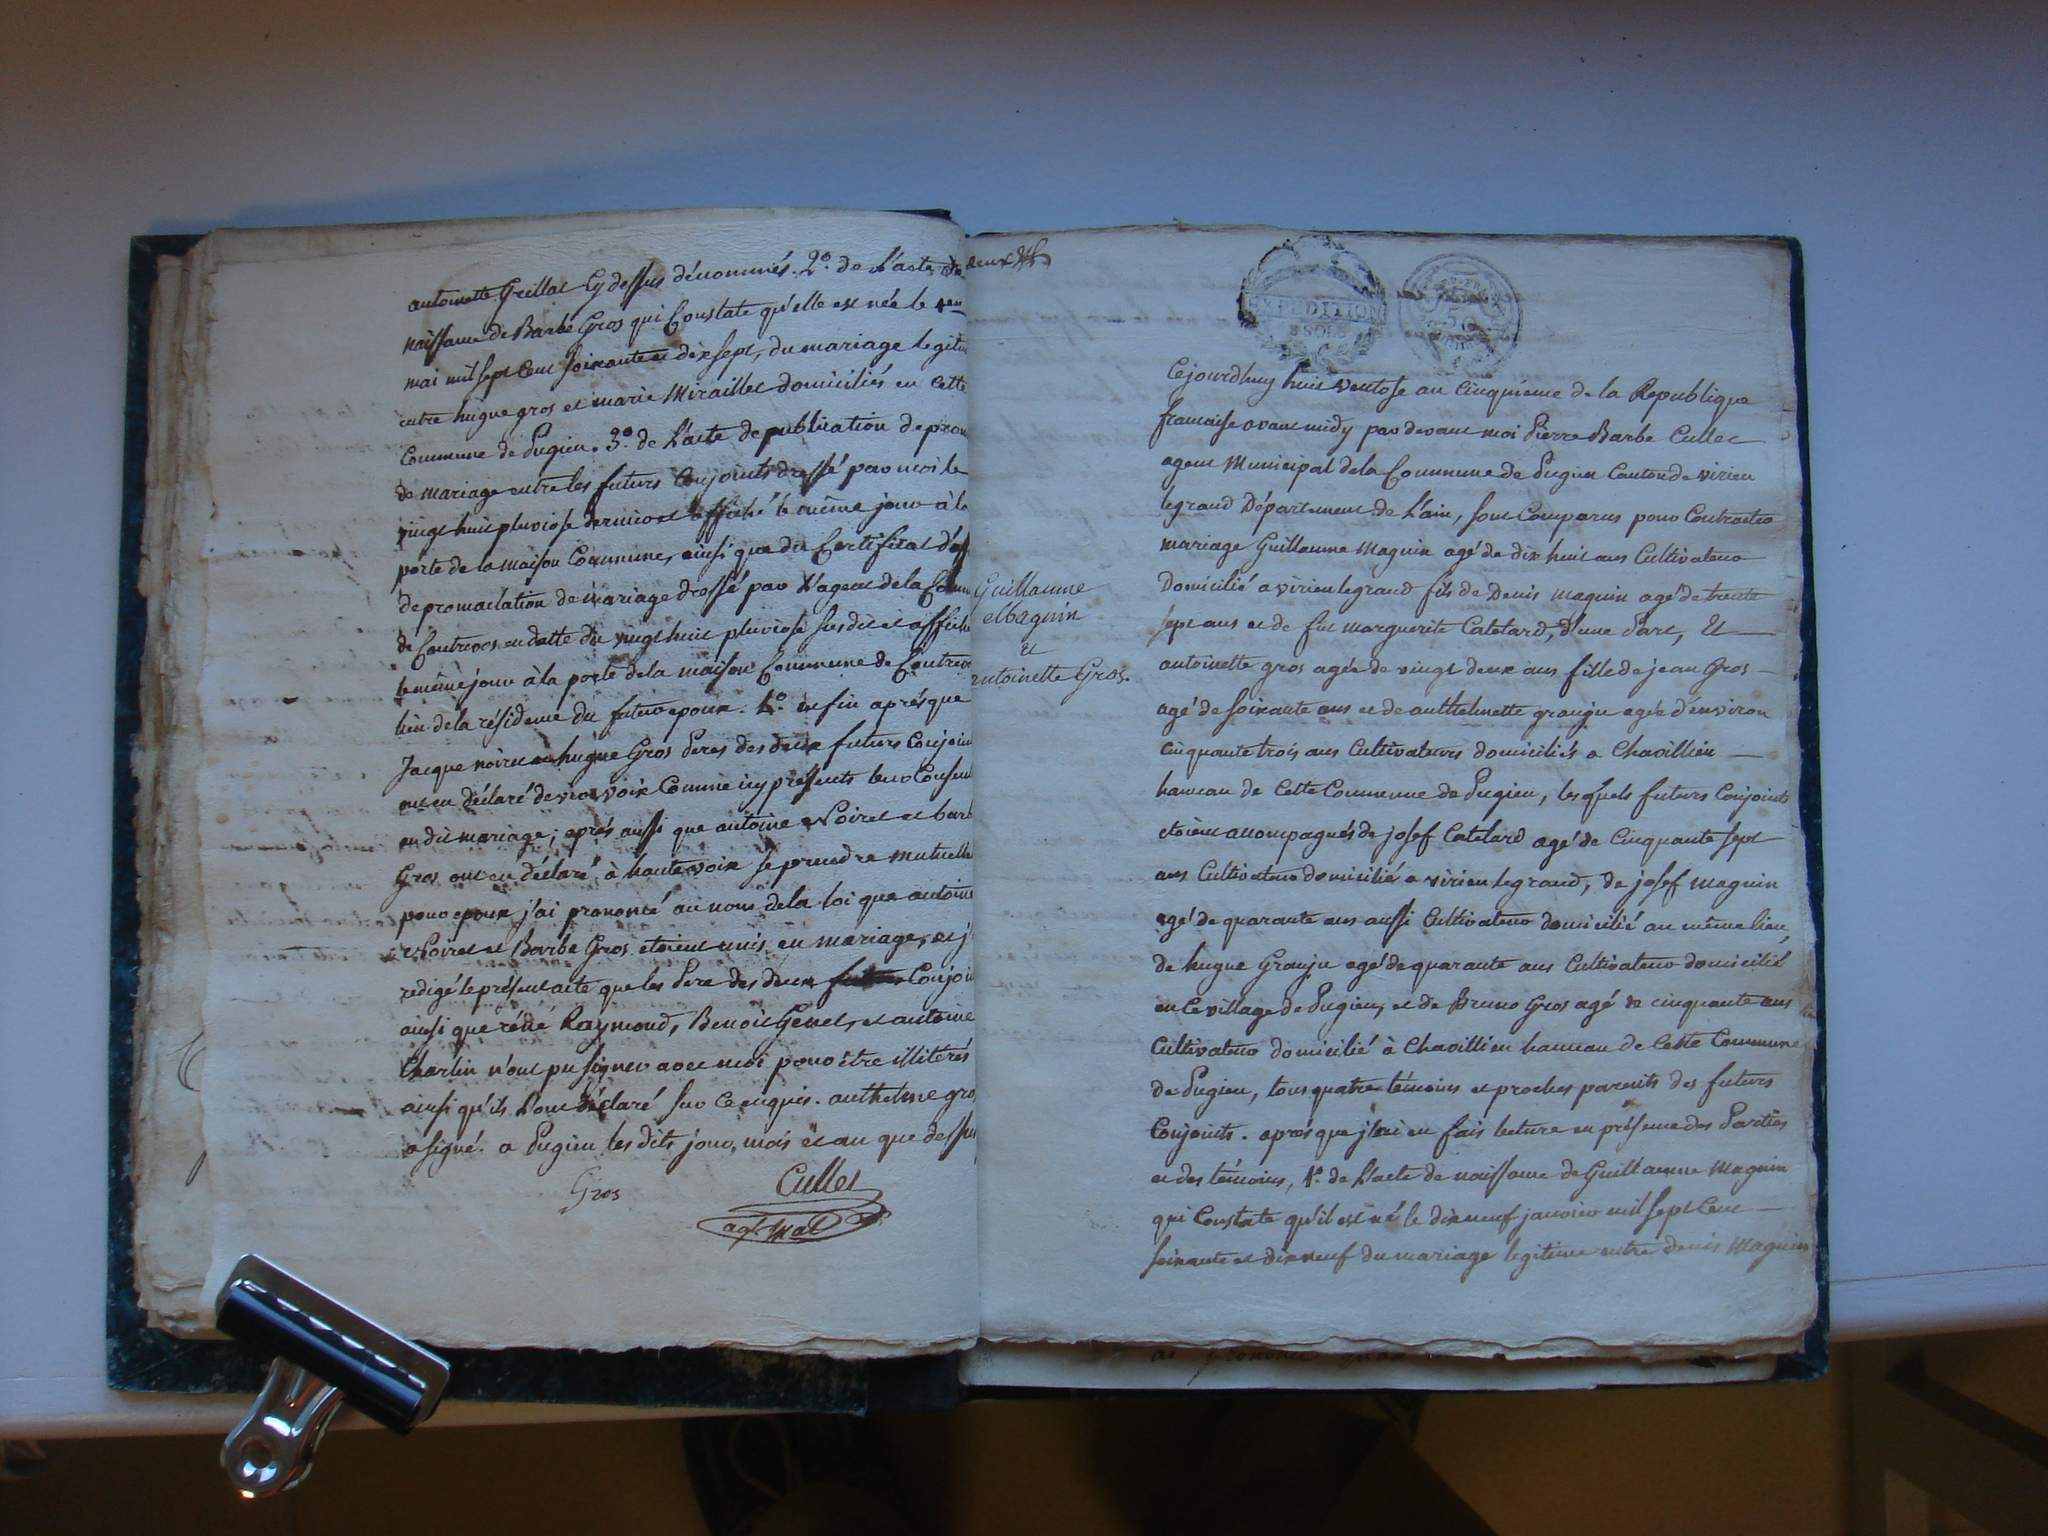 antoinette Grillat Cy dessus dénommés. 2º. de L'acte de
naissance de Barbe Gros qui Constate qu'elle est née le
mai mil sept Cent soixante et dix sept, du mariage legiti
entre hugue gros et marie Miraillet domiciliés en cette
Commune de Pugieu. 3º. de L'acte de publication de prom
de mariage entre les futurs Conjoints dressé par moi le
vingt huit pluviose dernier et affiché le même jour à la
porte de la maison Commune, ainsi que du Certificat d'aff
de promaclation de mariage dressé par L'agent de la Comm
de Contrevos en datte du vingt huit pluviose susdit et affiché
le même jour à la porte de la maison Commune de Contrevo
lieu de la résidence du futur epoux. 4º. enfin après que
Jacque noiret et hugue Gros Peres des deux futurs Conjoin
ont eu déclaré de vive voix Comme icy présents leur Consent
au dit mariage; après aussi que antoine Noiret et barb
Gros ont eu déclaré à haute voix se prendre mutuelle
pour epoux j'ai prononcé au nom de la loi que antoine
Noiret et Barbe Gros etoient unis en mariage, et j'
redigé le présent acte que les Pere des deux Conjoi
ainsi que réné Raymond, Benoit Genet, et antoine
Charlin n'ont pu signer avec moi pour être illitérés
ainsi qu'ils L'ont déclaré sur ce enquis. anthelme gro
a signé. a Pugieu les dits jour, mois et an que dessu
Gros
Cullet
agt. mal
EXPEDITION
SOLS
50
Guillaume
Maguin
et
antoinette Gros.
Cejourdhuy huit ventose an Cinquieme de la Republique
francaise avant midy par devant moi Pierre Barbe Cullet
agent Municipal de la Commune de Pugieu Canton de virieu
legrand Département de L'ain, sont Comparus pour Contracter
mariage Guillaume Maguin agé de dix huit ans Cultivateur
Domicilié a virieu legrand fils de Denis maguin agé de trente
sept ans et de fue marguerite Catelard, d'une Part, Et
antoinette gros agée de vingt deux ans fille de jean Gros
agé de soixante ans et de anthelmette granju agée d'environ
cinquante trois ans Cultivateurs domiciliés a Chavillieu
hameau de Cette Commune de Pugieu, lesquels futurs Conjoints
etoient accompagnés de josef Catelard agé de Cinquante sept
ans Cultivateur domicilié a virieu legrand, de josef maguin
agé de quarante ans aussi Cultivateur domicilié au même lieu,
de hugue Granju agé de quarante ans Cultivateur domicilié
en ce village de Pugieu, et de Bruno Gros agé de cinquante ans
Cultivateur domicilié à Chavillieu hameau de Cette Commune
de Pugieu, tous quatre témoins et proches parents des futurs
Conjoints. après que j'ai eu fais lecture en présence des Parties
et des témoins, 1º. de L'acte de naissance de Guillaume Maguin
qui Constate qu'il est né le dixneuf janvier mil sept Cent
soixante et dixneuf du mariage legitime entre denis Maguin